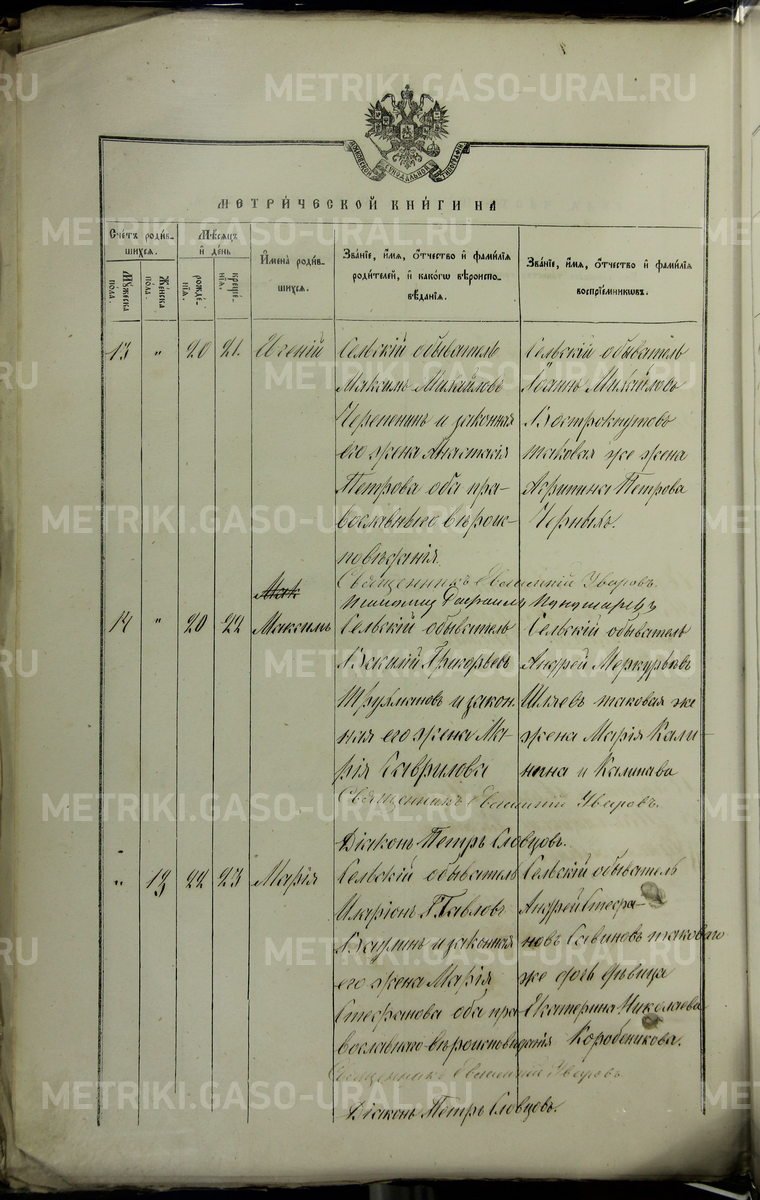 МЕТРИ́ЧЕСКОЙ КНИ́ГИ НА
Сче́тъ роди́в-
шихся.
Му́жеска
пола.
Же́нска
пола.
Мѣ́сяцъ
и҆ де́нь
рожде́-
нїя.
креще́-
нїя.
И҆мена̀ роди́в-
шихся.
Зва́нїе, и҆́мя, ѻ҆́тчество и҆ фами́лїя
роди́телей, и҆ како́гѡ вѣроиспо-
вѣ́данїя.
Зва́нїе, и҆́мя, ѻ҆́тчество и҆ фами́лїя
воспрїе́мникѡвъ.
13 " 20 21. Евгеній
Сельскій обыватель
Максимъ Михайловъ
Черепенинъ и законная
его жена Анастасія
Петрова оба пра-
вославнаго вѣроис-
повѣданія.
Сельскій обыватель
Іоаннъ Михайловъ
Вострокнутовъ
таковая же жена
Агрипина Петрова
Черныхъ.
Священникъ Евлампій Уваровъ.
Мак
14 " 20 22 Максимъ
Сельскій обыватель
Василій Григорьевъ
Трухмановъ и закон
ная его жена Ма-
рія Гаврилова
Сельскій обыватель
Андрей Меркурьевъ
Шляевъ таковая же
жена Марія Кали-
нина и Калинава
Священникъ Евлампій Уваровъ.
Діаконъ Петръ Словцовъ.
" 13 22 23 Марія
Сельскій обыватель
Иларіонъ Павловъ
Ваулинъ и законная
его жена Марія
Стефанова оба пра-
вославнаго вѣроисповѣданія
Сельскій обыватель
Андрей Стефа-
новъ Савиновъ таковаго
же дочь дѣвица
Екатерина Николаева
Коробеникова.
Священникъ Евлампій Уваровъ
Діаконъ Петръ Словцовъ.
METRIKI.GASO-URAL.RU